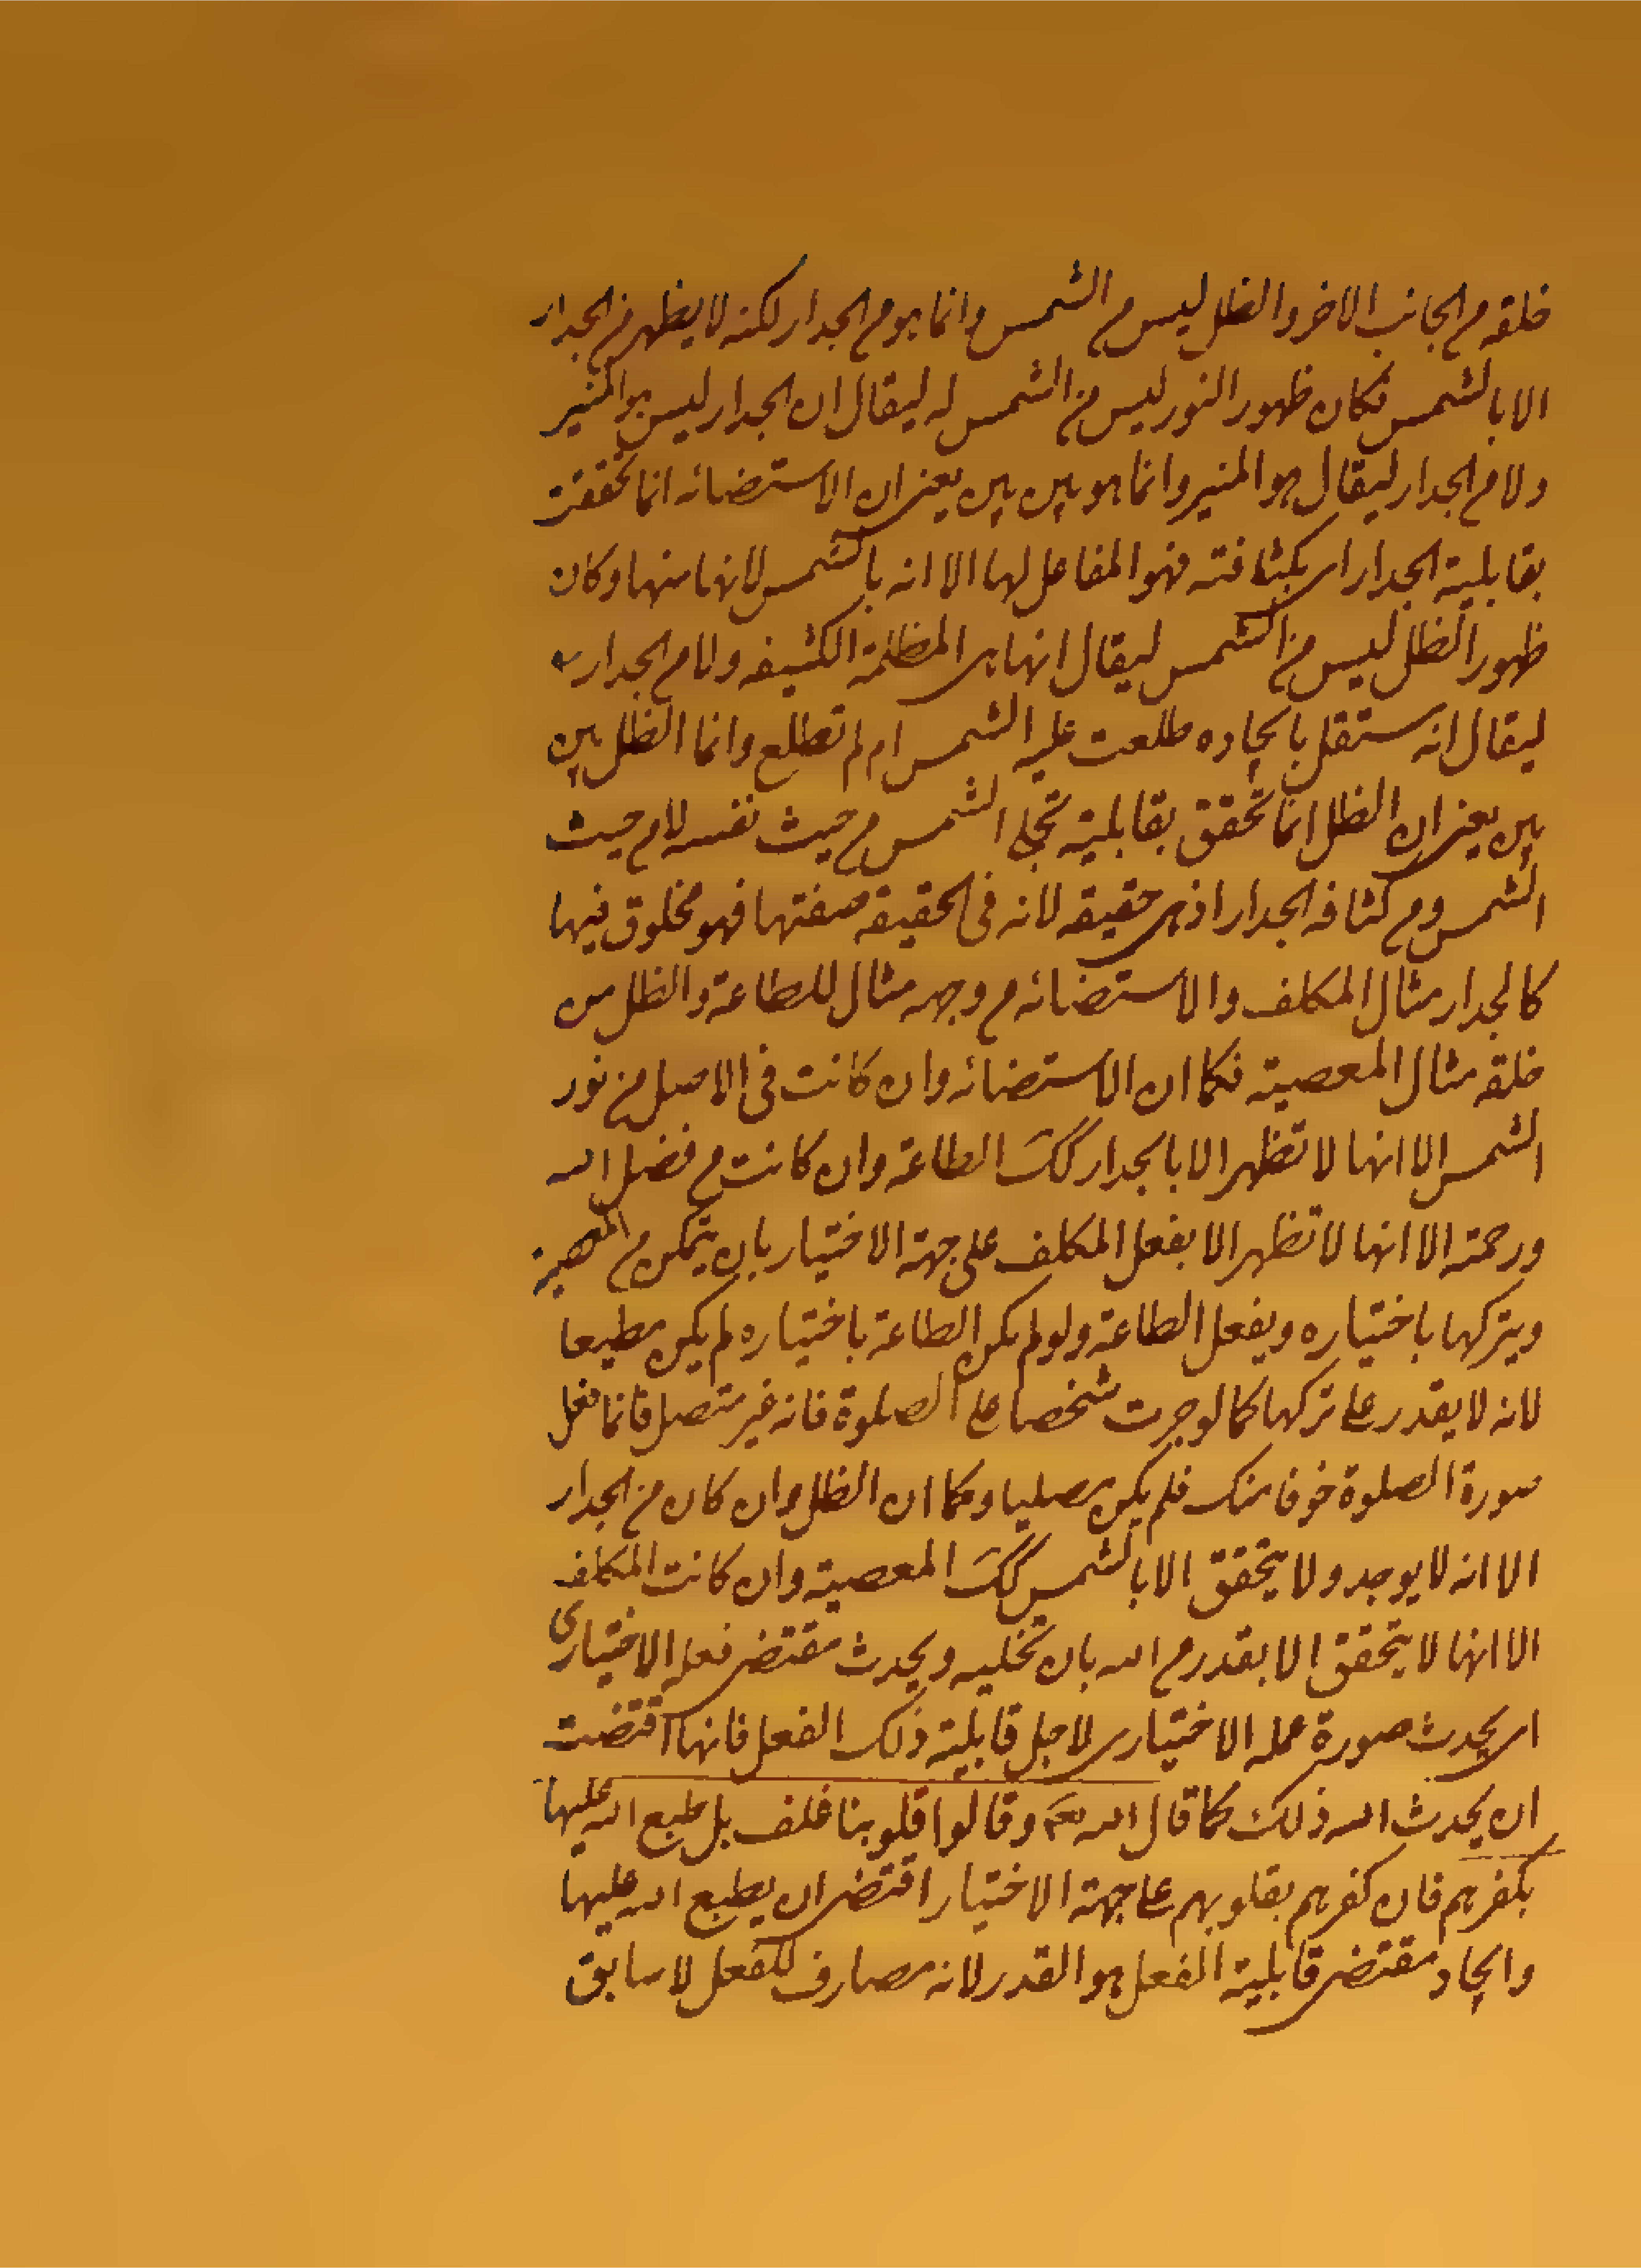 خلقه من الجانب الاخر والظل ليس من الشمس وانما هو من الجدار لكنه لا يظهر من الجدار
الا بالشمس فكان ظهور النور ليس من الشمس له ليقال ان الجدار ليس هو المنير
ولا من الجدار ليقال هو المنير وانما هو بين بين يعنى ان الاستضائه انما تحققت
بقابلية الجدار اى بكثافته فهو الفاعل لها الا انه بالشمس لانها منها وكان
ظهور الظل ليس من الشمس ليقال انها هى المظلمة الكثيفه ولا من الجدار
ليقال انه مستقل بايجاده طلعت عليه الشمس ام لم تطلع وانما الظل بين
بين يعنى ان الظل انما تحقق بقابلية تجلى الشمس من حيث نفسه لا من حيث
الشمس ومن كثافه الجدار اذ هى حقيقه لانه فى الحقيقه صفتها فهو مخلوق فيها
كالجدار مثال المكلف والاستضائه من وجهه مثال للطاعة والظل من
خلفه مثال المعصية فكما ان الاستضائه وان كانت فى الاصل من نور
الشمس الا انها لا تظهر الا بالجدار كك الطاعة وان كانت من فضل الله
ورحمة الا انها لا تظهر الا بفعل المكلف على جهة الاختيار بان يتمكن من المعصية
ويتركها باختياره ويفعل الطاعة ولو لم يكن الطاعة باختياره لم يكن مطيعا
لانه لا يقدر على تركها كما لو جبرت شخصا على الصلوة فانه غير متصل فانما فعل
صورة الصلوة خوفا منك فلم يكن مصليا وكما ان الظل وان كان من الجدار
الا انه لا يوجد ولا يتحقق الا بالشمس كك المعصية وان كانت المكلف
الا انها لا يتحقق الا بقدر من الله بان تخليه ويحدث مقتضى فعله الاختيارى
اى يحدث صورة عمله الاختيارى لاجل قابلية ذلك الفعل فانها اقتضت
ان يحدث الله ذلك كما قال الله تعالى وقالوا قلوبنا غلف بل طبع الله عليها
بكفرهم فان كفرهم بقلوبهم على جهة الاختيار اقتضى ان يطبع الله عليها
وايجاد مقتضى قابلية الفعل هو القدر لانه مصارف للفعل لا سابق